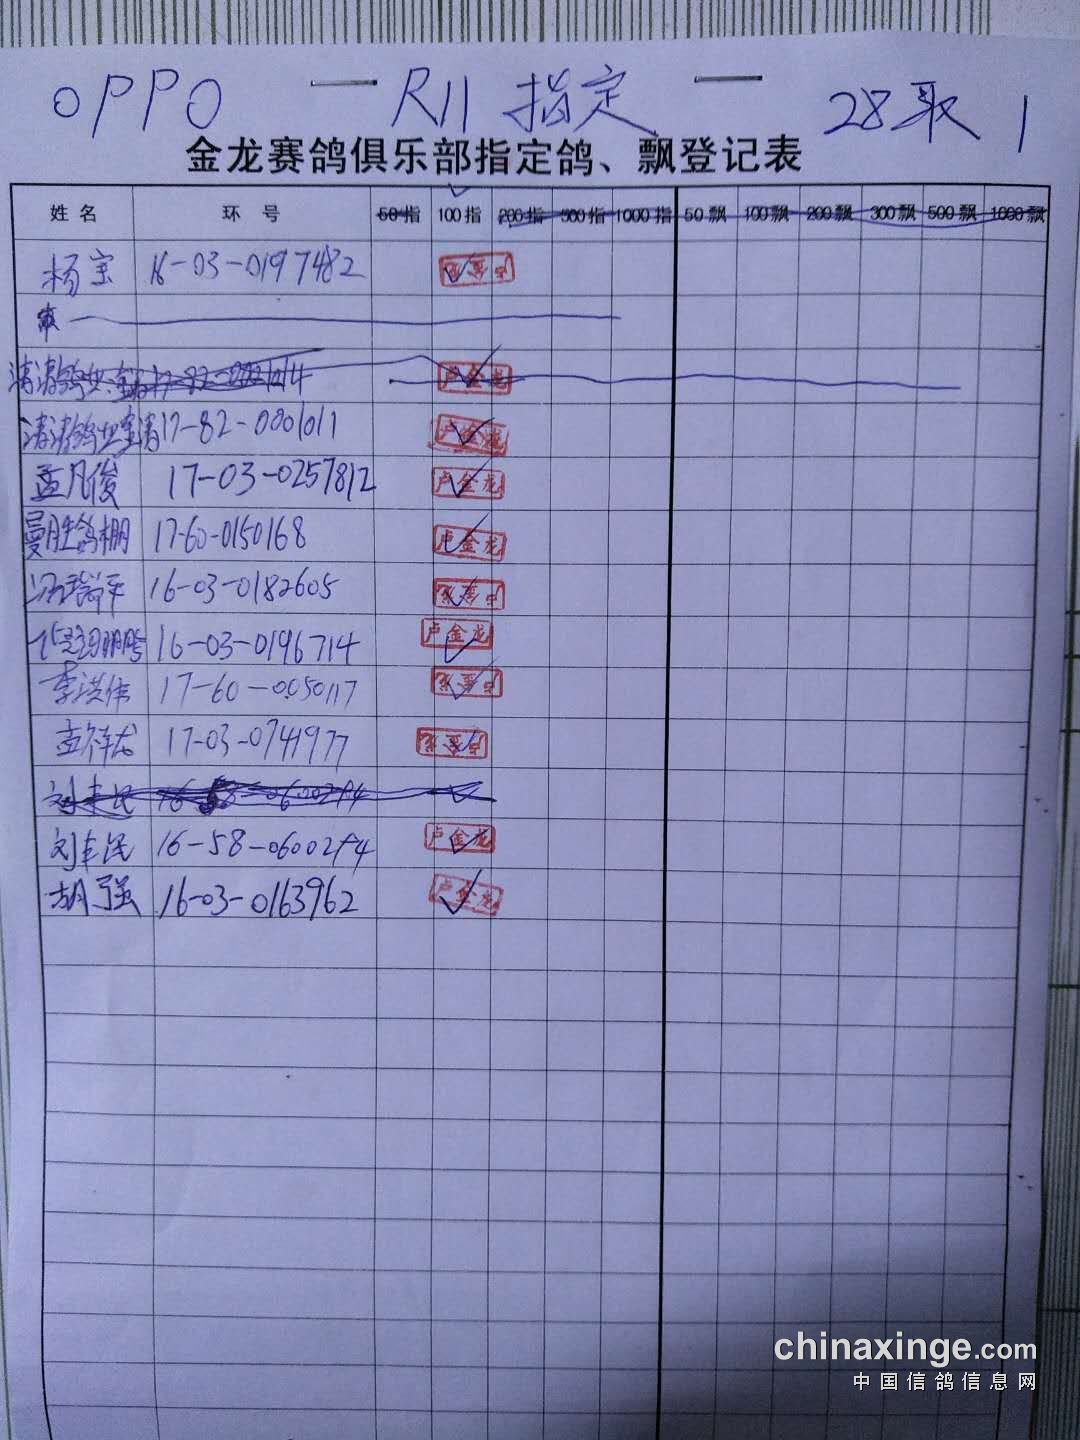 OPPO — R11 指定 — 28取1
金龙赛鸽俱乐部指定鸽、飘登记表
姓名 环号 50指 100指 200指 500指 1000指 50飘 100飘 200飘 300飘 500飘 1000飘
杨宝 16-03-0197482
清清鸽业 17-82-0001011 卢金龙
孟凡俊 17-03-0257812 卢金龙
曼胜鸽棚 17-60-0150168 卢金龙
冯瑞平 16-03-0182605
16-03-0196714 卢金龙
李洪伟 17-60-0050117
孟祥龙 17-03-0741977
刘丰民 16-58-0600284 卢金龙
胡强 16-03-0163962 卢金龙
chinaxinge.com
中国信鸽信息网